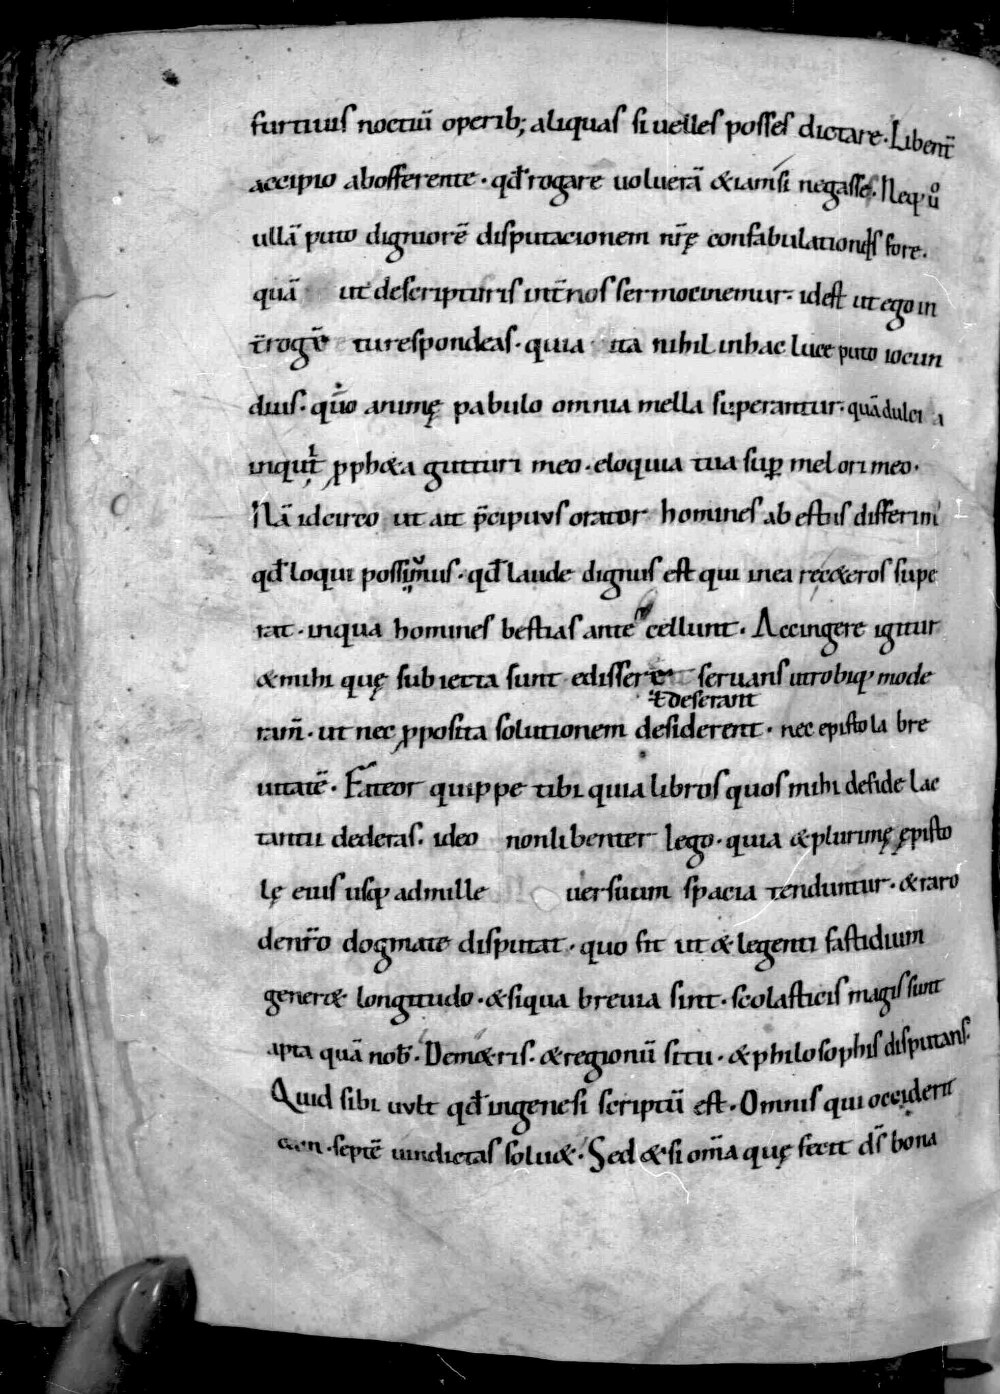 furtiuis noctiū operib; aliquas si uelles posses dictare. Libent̄
accipio abofferente. qd̄ rogare uoluerā &iamsi negasses. Neq; ůͦ
ullā puto digniorē disputacionem nr̄ę confabulationis fore.
quā ut descripturis int̄nos sermocinemur. idest ut ego in
t̄rogē turespondeas. quia ita nihil inhac luce puto iocun
dius. qm̄o animę pabulo omnia mella superantur. quā dulcia
inquit ꝓph&a gutturi meo. eloquia tua suꝑ mel ori meo.
Nā idcirco ut ait p̄cipuus orator homines ab estiis differim'
qd̄ loqui possimus. qd̄ laude dignus est qui inea re c&eros supe
rat. inqua homines bestias antecellunt. Accingere igitur
&mihi quę subiecta sunt edissere seruans utrobiq; mode
ram̄. ut nec ꝓposita solutionem desiderent. nec epistola bre
ł deserant
uitatē. Fateor quippe tibi quia libros quos mihi deside lac
tantii dederas. ideo nonlibenter lego. quia &plurimę ępisto
lę eius usq; admille uersuum spacia tenduntur. &raro
denr̄o dogmate disputat. quo fit ut & legenti fastidium
gener& longitudo. &siqua breuia sint. scolasticis magis sunt
apta quā nob̄. Dem&ris. &regionū situ. &philosophis disputans.
Quid sibi uult qd̄ ingenesi scriptū est. Omnis qui occiderit
cain. septē uindictas solu&. Sed &si om̄a quę fecit ds̄ bona